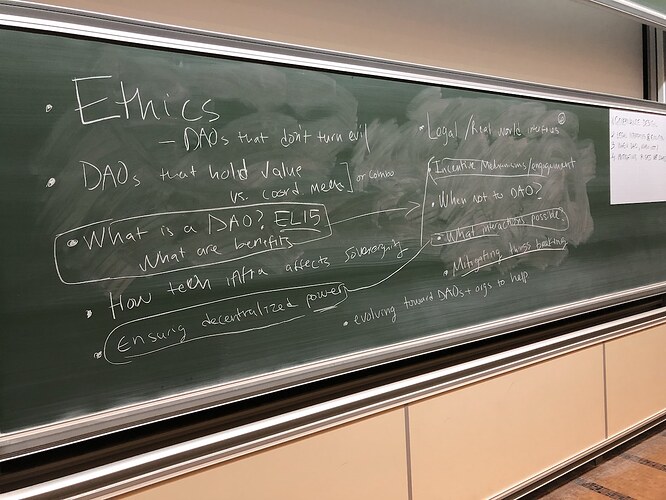 Ethics
- DAOs that don't turn evil
DAOs that hold value
vs. coord mechs
or combo
What is a DAO? ELI5
What are benefits
How tech infra affects sovereignty
Ensuring decentralized power
Legal / Real world interfaces
Incentive Mechanisms/engagement
When not to DAO?
What interactions possible?
Mitigating
evolving toward DAOs + orgs to help